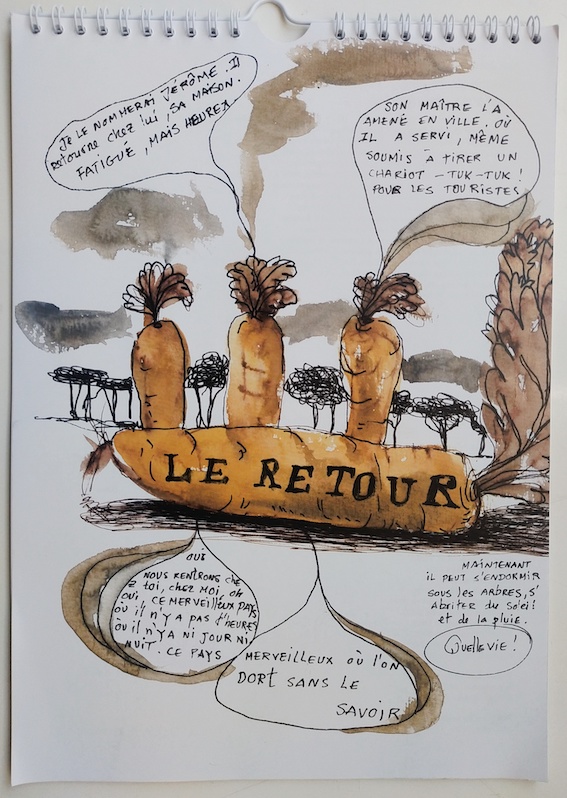 Je le nommerai Jérôme. Il
retourne chez lui, sa maison.
FATIGUÉ, MAIS HEUREX
SON MAÎTRE L'A
AMENÉ EN VILLE, OÙ
IL A SERVI, MÊME
SOUMIS À TIRER UN
CHARIOT - TUK-TUK!
POUR LES TOURISTES
LE RETOUR
OUI
NOUS RENTRONS CHE
Z toi, CHEZ MOI, oh
oui, CE MERVEILLEUX PAYS
où il n'y a pas d'HEURES
où il n'y A Ni JOUR Ni
NUIT. CE PAYS
MERVEILLEUX où l'on
DORT SANS LE
SAVOIR
MAINTENANT
il PEUT S'ENDORMIR
SOUS LES ARBRES, S'
Abriter du Soleil
et de la pluie.
Quelle vie!